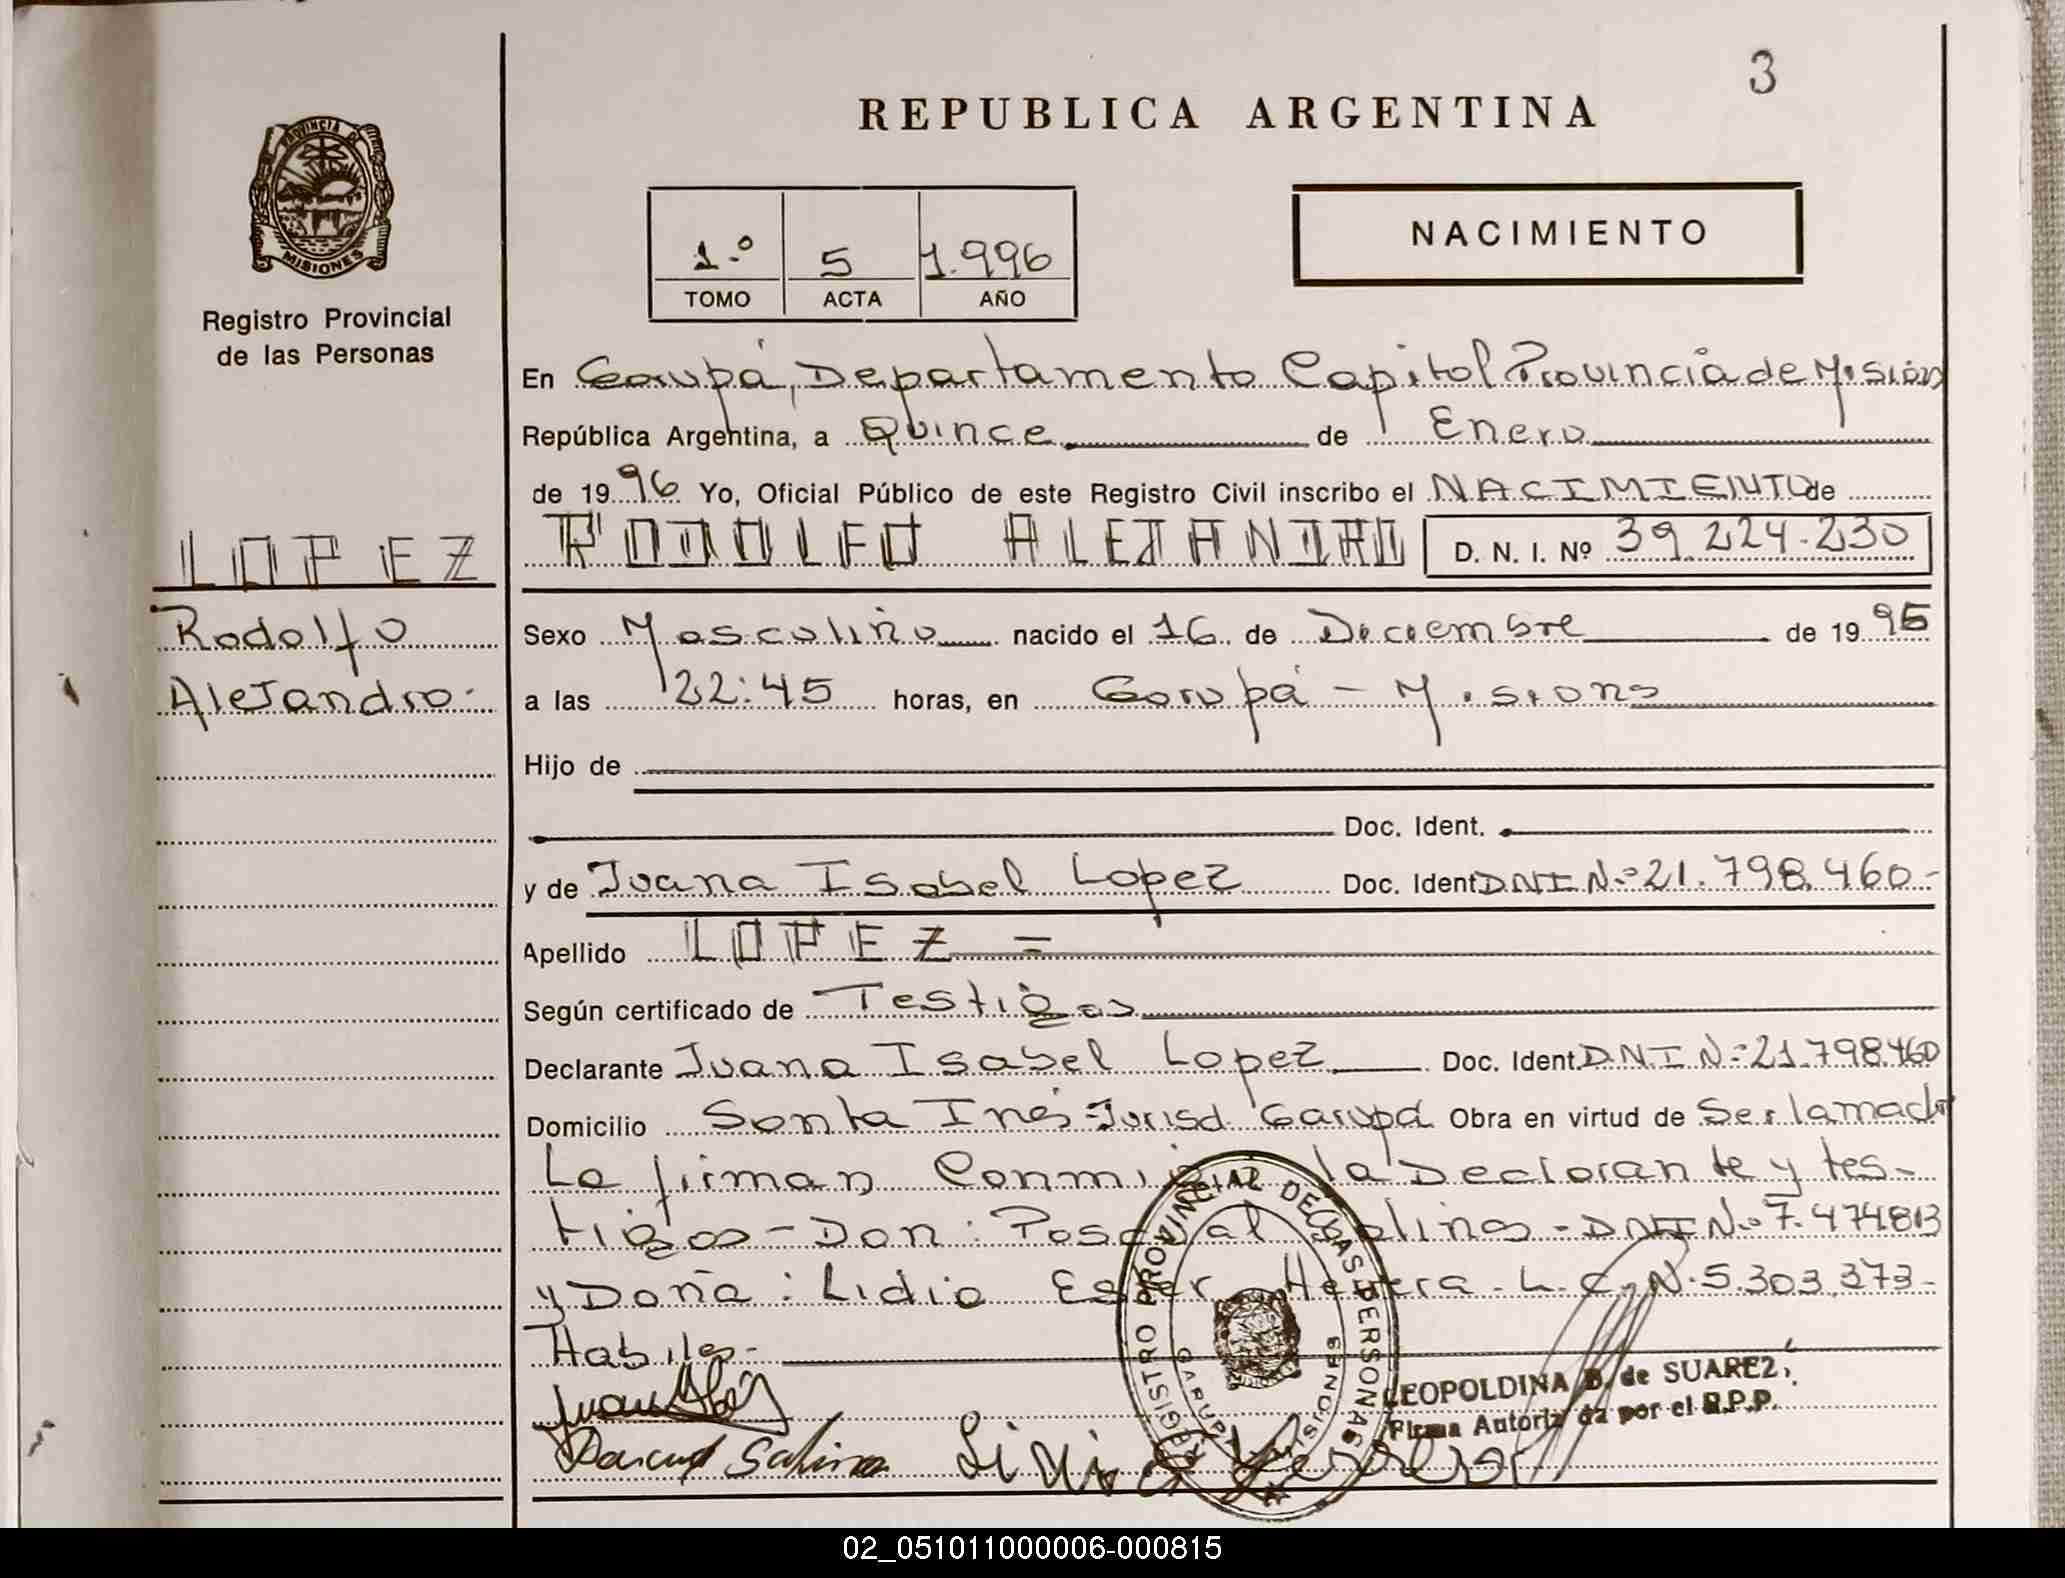 3
REPUBLICA ARGENTINA
PROVINCIA DE
MISIONES
1.º 5 1.996
TOMO ACTA AÑO
NACIMIENTO
Registro Provincial
de las Personas
En Garupá, Departamento Capital Provincia de Misiones
República Argentina, a Quince de Enero
de 1996 Yo, Oficial Público de este Registro Civil inscribo el NACIMIENTO de
LOPEZ
RODOLFO ALEJANDRO D. N. I. Nº 39.224.230
Rodolfo
Alejandro.
Sexo Masculino nacido el 16 de Diciembre de 1995
a las 22:45 horas, en Garupá - Misiones
Hijo de
Doc. Ident.
y de Juana Isabel Lopez Doc. Ident DNI Nº 21.798.460-
Apellido LOPEZ =
Según certificado de Testigos
Declarante Juana Isabel Lopez Doc. Ident. D.N.I Nº 21.798.460
Domicilio Santa Inés Jurisd Garupá Obra en virtud de Ser la madre
La firman Conmigo la Declarante y tes-
tigos - Don: Pascual Salinas - DNI Nº 7.474.813
y Doña: Lidia Ester Herrera - L.C. N. 5.303.373-
Habiles-
REGISTRO PROVINCIAL DE LAS PERSONAS
GARUPA MISIONES
LEOPOLDINA B. de SUAREZ
Firma Autorizada por el R.P.P.
Salinas
02_051011000006-000815